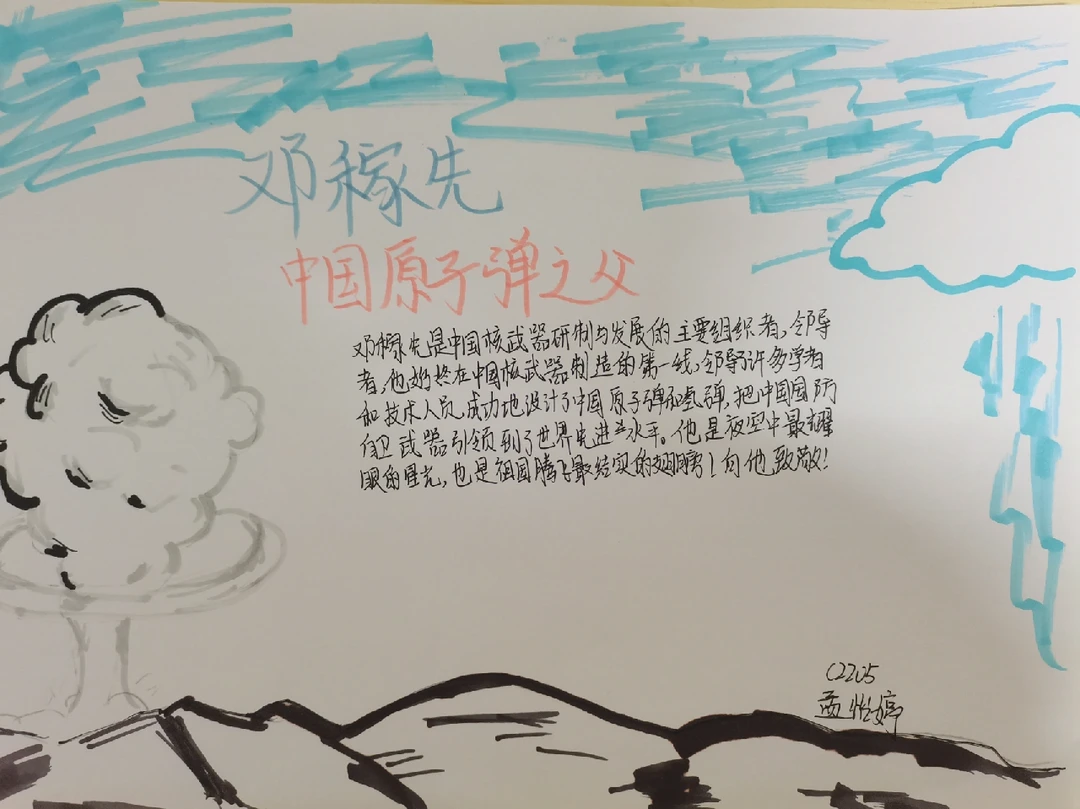 邓稼先
中国原子弹之父
邓稼先是中国核武器研制与发展的主要组织者，领导
者，他始终在中国核武器制造的第一线，领导了许多学者
和技术人员，成功地设计了中国原子弹和氢弹，把中国国防
自卫武器引领到了世界先进水平。他是夜空中最耀
眼的星光，也是祖国腾飞最结实的翅膀！向他致敬！
C2205
孟怡婷